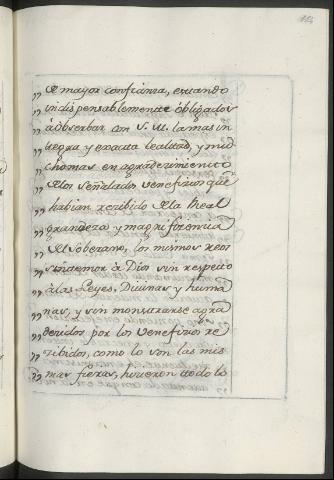 de mayor confianza, estando
„ indispensablemente obligados
„ à observar con S. M. la mas in
„ tegra y exacta lealtad, y mu
„ cho mas en agradecimiento
„ de los señalados veneficios que
„ habian recibido de la Real
„ grandeza y magnificencia
„ del Soberano, los mismos reos
„ sin temor à Dios sin respecto
„ à las Leyes, Divinas y huma
„ nas, y sin monstrarse agra
„ decidos por los veneficios re
„ zibidos, como lo son las mis
„ mas fieras, hicieron todo lo